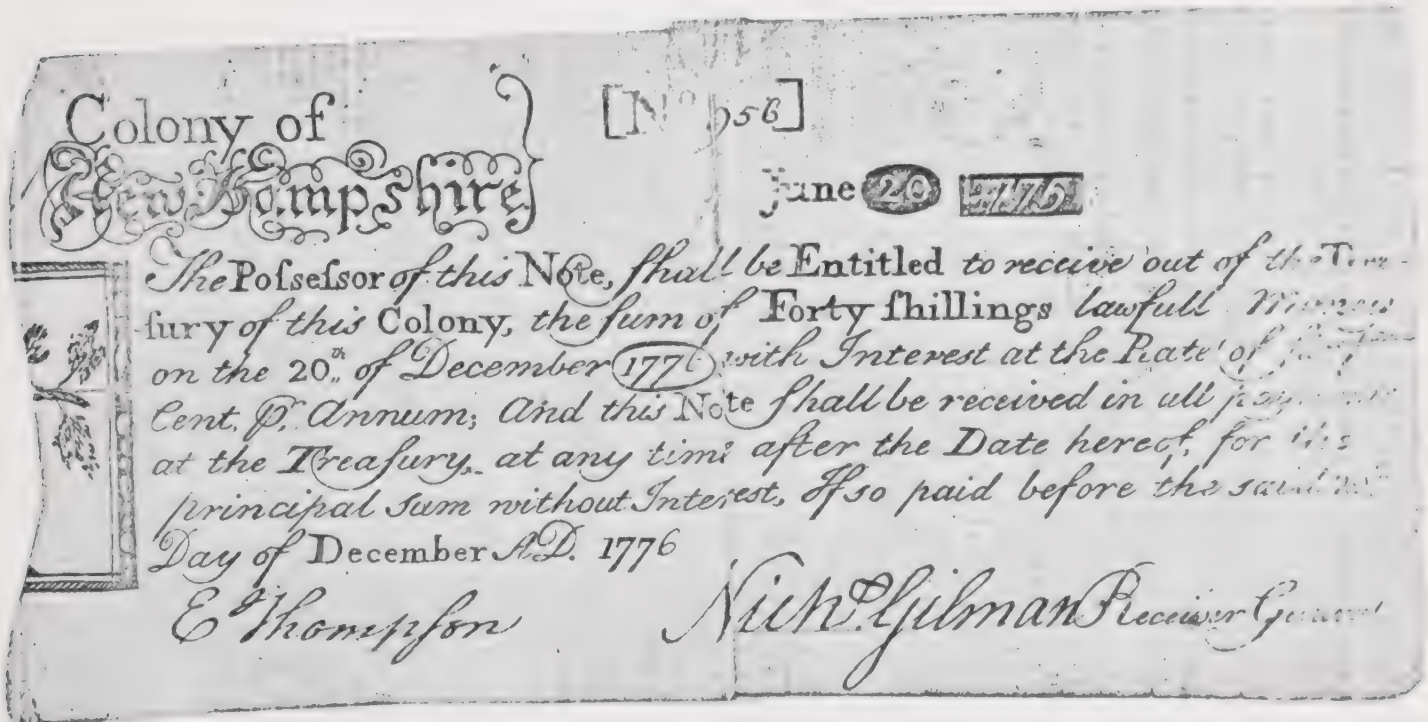 Colony of
New Hampshire
[No 956]
June 20 1775
The Poſseſsor of this Note, ſhall be Entitled to receive out of the Trea-
ſury of this Colony, the ſum of Forty ſhillings lawfull Money
on the 20.th of December 1776 with Interest at the Rate of
Cent, P. Annum; And this Note ſhall be received in all
at the Treaſury, at any time after the Date hereof, for the
principal sum without Interest, If so paid before the said
Day of December A.D. 1776
E Thompſon
Nichs. Gilman Receiver General